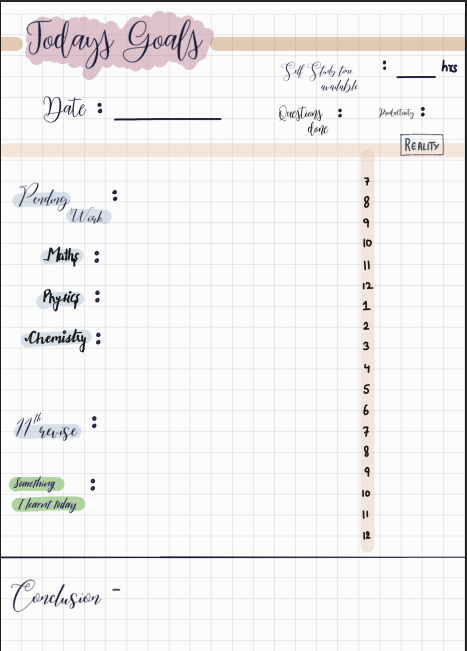 Todays Goals
Self Study time : ____ hrs
available
Date : ____
Questions :
done
Productivity :
REALITY
Pending :
Work
Maths :
Physics :
Chemistry :
11th revise :
Something :
I learnt today
7
8
9
10
11
12
1
2
3
4
5
6
7
8
9
10
11
12
Conclusion -